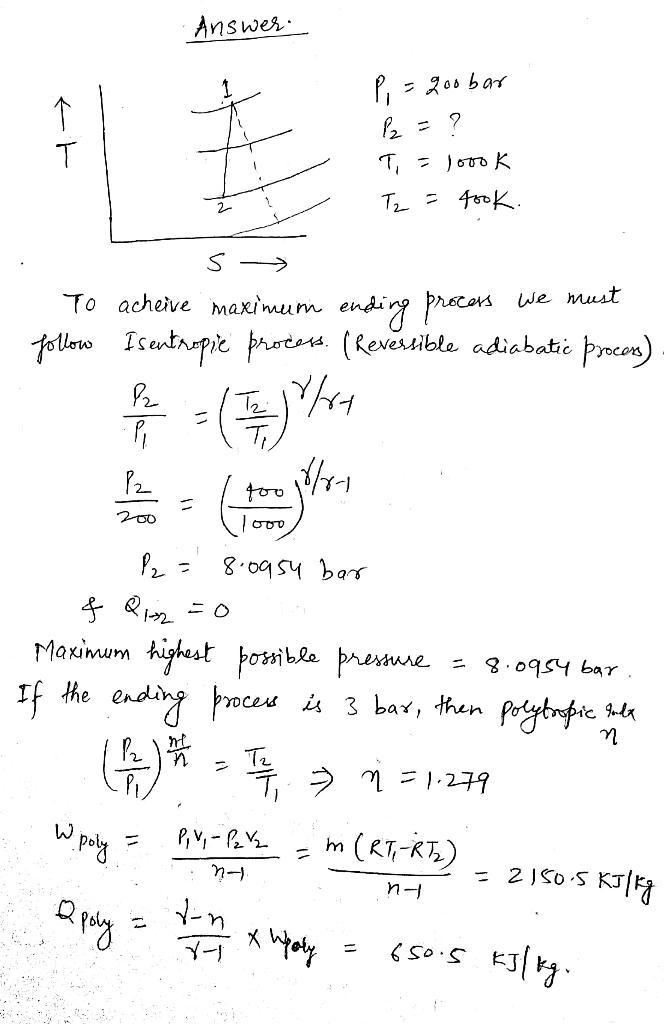 Answer.
1
↑
T
2
S →
P₁ = 200 bar
P₂ = ?
T₁ = 1000 K
T₂ = 400K.
To acheive maximum ending process we must
follow Isentropic process. (Reversible adiabatic process).
P₂/P₁ = (T₂/T₁)^γ/γ-1
P₂/200 = (400/1000)^γ/γ-1
P₂ = 8.0954 bar
& Q₁→₂ = 0
Maximum highest possible pressure = 8.0954 bar.
If the ending process is 3 bar, then polytropic n
(P₂/P₁)^n-1/n = T₂/T₁ ⇒ n = 1.279
W poly = P₁V₁ - P₂V₂/n-1 = m (RT₁-RT₂)/n-1 = 2150.5 KJ/kg
Q poly = γ-n/γ-1 x Wpoly = 650.5 KJ/kg.